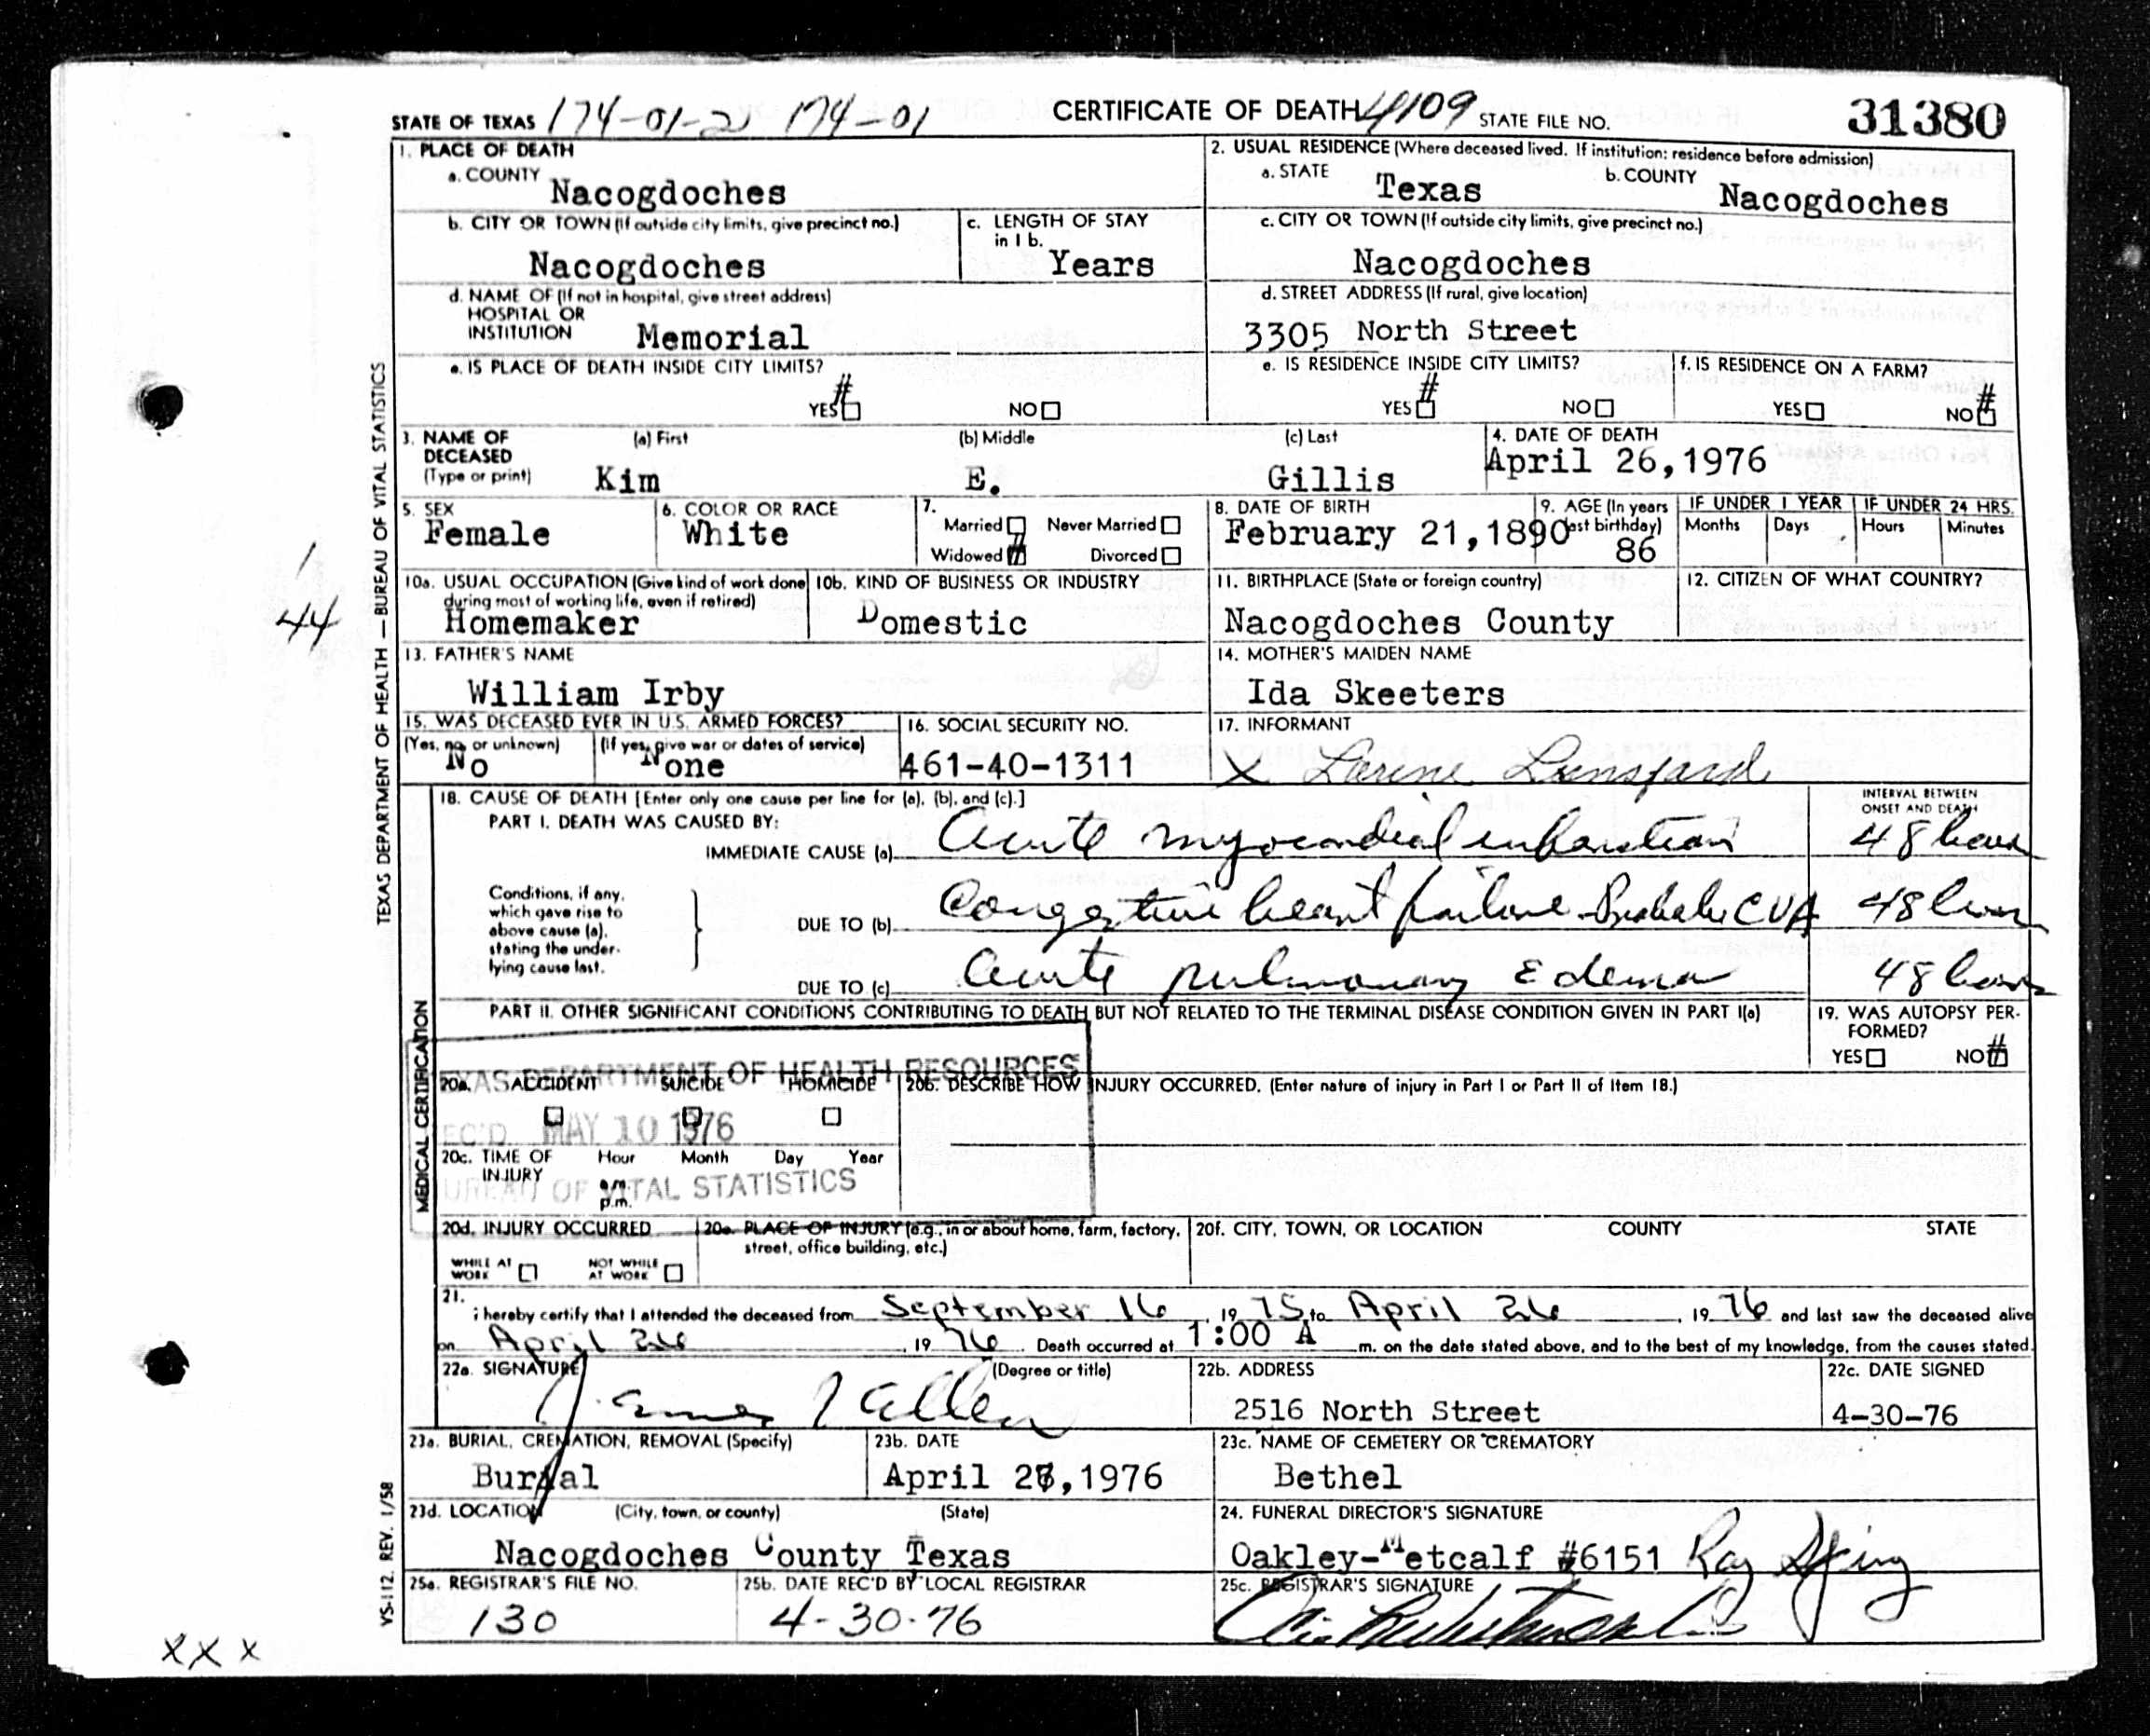 STATE OF TEXAS 174-01-2 174-01 CERTIFICATE OF DEATH 4109 STATE FILE NO. 31380
1. PLACE OF DEATH
a. COUNTY Nacogdoches
2. USUAL RESIDENCE (Where deceased lived. If institution: residence before admission)
a. STATE Texas b. COUNTY Nacogdoches
b. CITY OR TOWN (If outside city limits, give precinct no.) Nacogdoches
c. LENGTH OF STAY in 1 b. Years
c. CITY OR TOWN (If outside city limits, give precinct no.)
Nacogdoches
d. NAME OF (If not in hospital, give street address)
HOSPITAL OR
INSTITUTION Memorial
d. STREET ADDRESS (If rural, give location)
3305 North Street
e. IS PLACE OF DEATH INSIDE CITY LIMITS?
YES # NO
e. IS RESIDENCE INSIDE CITY LIMITS?
YES # NO
f. IS RESIDENCE ON A FARM?
YES NO #
3. NAME OF DECEASED (Type or print)
(a) First (b) Middle (c) Last
Kim E. Gillis
4. DATE OF DEATH
April 26,1976
5. SEX
Female
6. COLOR OR RACE
White
7.
Married Never Married
Widowed # Divorced
8. DATE OF BIRTH
February 21,1890
9. AGE (In years last birthday)
86
IF UNDER 1 YEAR IF UNDER 24 HRS.
Months Days Hours Minutes
10a. USUAL OCCUPATION (Give kind of work done during most of working life, even if retired)
Homemaker
10b. KIND OF BUSINESS OR INDUSTRY
Domestic
11. BIRTHPLACE (State or foreign country)
Nacogdoches County
12. CITIZEN OF WHAT COUNTRY?
13. FATHER'S NAME
William Irby
14. MOTHER'S MAIDEN NAME
Ida Skeeters
15. WAS DECEASED EVER IN U.S. ARMED FORCES?
(Yes, no, or unknown) (If yes, give war or dates of service)
No None
16. SOCIAL SECURITY NO.
461-40-1311
17. INFORMANT
X Lorine Lunsford
18. CAUSE OF DEATH [Enter only one cause per line for (a), (b), and (c).]
INTERVAL BETWEEN
ONSET AND DEATH
PART I. DEATH WAS CAUSED BY:
IMMEDIATE CAUSE (a) Acute myocardial infarction 48 hours
Conditions, if any,
which gave rise to
above cause (a),
stating the under-
lying cause last.
DUE TO (b) Congestive heart failure - Probable CVA 48 hours
DUE TO (c) Acute pulmonary Edema 48 hours
PART II. OTHER SIGNIFICANT CONDITIONS CONTRIBUTING TO DEATH BUT NOT RELATED TO THE TERMINAL DISEASE CONDITION GIVEN IN PART I(a)
19. WAS AUTOPSY PER-
FORMED?
YES NO #
TEXAS DEPARTMENT OF HEALTH RESOURCES
REC'D MAY 10 1976
BUREAU OF VITAL STATISTICS
20a. ACCIDENT SUICIDE HOMICIDE
20b. DESCRIBE HOW INJURY OCCURRED. (Enter nature of injury in Part I or Part II of Item 18.)
20c. TIME OF INJURY
Hour Month Day Year
a.m.
p.m.
20d. INJURY OCCURRED
WHILE AT WORK NOT WHILE AT WORK
20e. PLACE OF INJURY (e.g., in or about home, farm, factory, street, office building, etc.)
20f. CITY, TOWN, OR LOCATION COUNTY STATE
21.
I hereby certify that I attended the deceased from September 16, 1975, to April 26, 1976 and last saw the deceased alive
on April 26, 1976. Death occurred at 1:00 A m. on the date stated above, and to the best of my knowledge, from the causes stated.
22a. SIGNATURE (Degree or title)
22b. ADDRESS
2516 North Street
22c. DATE SIGNED
4-30-76
23a. BURIAL, CREMATION, REMOVAL (Specify)
Burial
23b. DATE
April ,1976
23c. NAME OF CEMETERY OR CREMATORY
Bethel
23d. LOCATION (City, town, or county) (State)
Nacogdoches County Texas
24. FUNERAL DIRECTOR'S SIGNATURE
Oakley-Metcalf #6151 Ray
25a. REGISTRAR'S FILE NO.
130
25b. DATE REC'D BY LOCAL REGISTRAR
4-30-76
25c. REGISTRAR'S SIGNATURE
TEXAS DEPARTMENT OF HEALTH — BUREAU OF VITAL STATISTICS
MEDICAL CERTIFICATION
VS-112 REV. 1/58
/
44
XXX